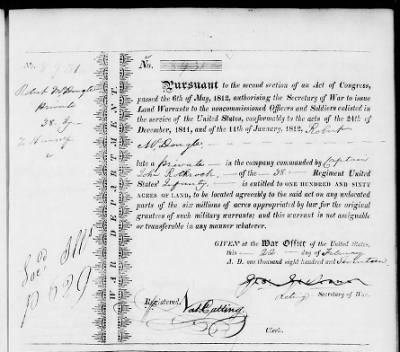 Robert McDougle
Private
38.
No.
PURSUANT to the second section of an Act of Congress,
passed the 6th of May, 1812, authorising the Secretary of War to issue
Land Warrants to the noncommissioned Officers and Soldiers enlisted in
the service of the United States, conformably to the acts of the 24th of
December, 1811, and of the 11th of January, 1812, Robert
McDougle
late a Private in the company commanded by Captain
John Rothrock of the 38 Regiment United
States' Infantry is entitled to ONE HUNDRED AND SIXTY
ACRES OF LAND, to be located agreeably to the said act on any unlocated
parts of the six millions of acres appropriated by law for the original
grantees of such military warrants; and this warrant is not assignable
or transferable in any manner whatever.
GIVEN at the War Office of the United States,
this 22 day of February
A. D. one thousand eight hundred and Seventeen
Acting Secretary of War.
Registered, Nat Cutting
Clerk.
WAR DEPARTMENT.
Ills
p 629